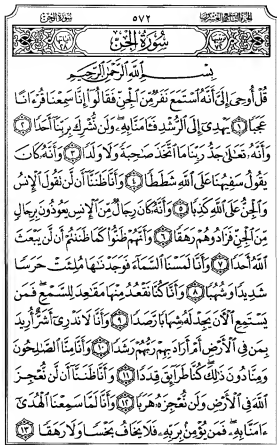 سُورَةُ الجِنِّ ٥٧٢ الجُزْءُ التَّاسِعُ وَالعِشْرُونَ
سُورَةُ الجِنِّ
بِسْمِ ٱللَّهِ ٱلرَّحْمَٰنِ ٱلرَّحِيمِ
قُلْ أُوحِىَ إِلَىَّ أَنَّهُ ٱسْتَمَعَ نَفَرٌ مِّنَ ٱلْجِنِّ فَقَالُوٓا۟ إِنَّا سَمِعْنَا قُرْءَانًا
عَجَبًا ١ يَهْدِىٓ إِلَى ٱلرُّشْدِ فَـَٔامَنَّا بِهِۦ وَلَن نُّشْرِكَ بِرَبِّنَآ أَحَدًا ٢
وَأَنَّهُۥ تَعَٰلَىٰ جَدُّ رَبِّنَا مَا ٱتَّخَذَ صَٰحِبَةً وَلَا وَلَدًا ٣ وَأَنَّهُۥ كَانَ
يَقُولُ سَفِيهُنَا عَلَى ٱللَّهِ شَطَطًا ٤ وَأَنَّا ظَنَنَّآ أَن لَّن تَقُولَ ٱلْإِنسُ
وَٱلْجِنُّ عَلَى ٱللَّهِ كَذِبًا ٥ وَأَنَّهُۥ كَانَ رِجَالٌ مِّنَ ٱلْإِنسِ يَعُوذُونَ بِرِجَالٍ
مِّنَ ٱلْجِنِّ فَزَادُوهُمْ رَهَقًا ٦ وَأَنَّهُمْ ظَنُّوا۟ كَمَا ظَنَنتُمْ أَن لَّن يَبْعَثَ
ٱللَّهُ أَحَدًا ٧ وَأَنَّا لَمَسْنَا ٱلسَّمَآءَ فَوَجَدْنَٰهَا مُلِئَتْ حَرَسًا
شَدِيدًا وَشُهُبًا ٨ وَأَنَّا كُنَّا نَقْعُدُ مِنْهَا مَقَٰعِدَ لِلسَّمْعِ فَمَن
يَسْتَمِعِ ٱلْـَٔانَ يَجِدْ لَهُۥ شِهَابًا رَّصَدًا ٩ وَأَنَّا لَا نَدْرِىٓ أَشَرٌّ أُرِيدَ
بِمَن فِى ٱلْأَرْضِ أَمْ أَرَادَ بِهِمْ رَبُّهُمْ رَشَدًا ١٠ وَأَنَّا مِنَّا ٱلصَّٰلِحُونَ
وَمِنَّا دُونَ ذَٰلِكَ كُنَّا طَرَآئِقَ قِدَدًا ١١ وَأَنَّا ظَنَنَّآ أَن لَّن نُّعْجِزَ
ٱللَّهَ فِى ٱلْأَرْضِ وَلَن نُّعْجِزَهُۥ هَرَبًا ١٢ وَأَنَّا لَمَّا سَمِعْنَا ٱلْهُدَىٰٓ
ءَامَنَّا بِهِۦ فَمَن يُؤْمِنۢ بِرَبِّهِۦ فَلَا يَخَافُ بَخْسًا وَلَا رَهَقًا ١٣